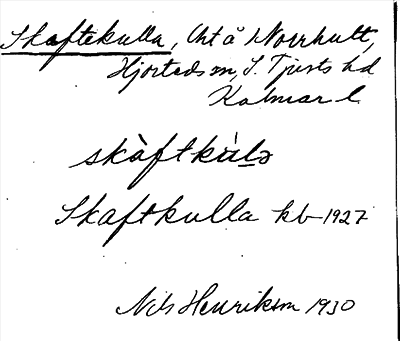 Skaftekulla, Uht å Norrhult,
Hjorteds sn, S. Tjusts hd
Kalmar l.
skàftkúlə
Skaftkulla kb 1927
Nils Henrikson 1930